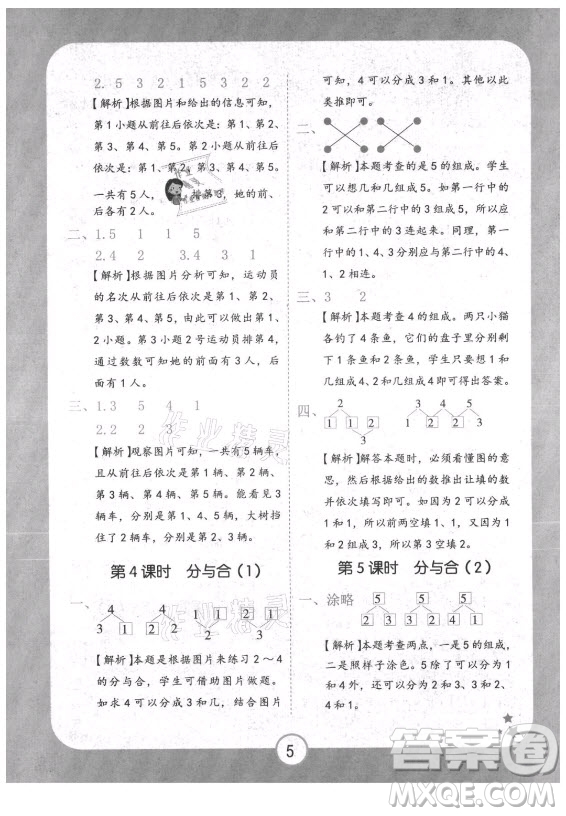 2. 5 3 2 1 5 3 2 2
【解析】根据图片和给出的信息可知，
第1小题从前往后依次是：第1、第2、
第3、第4、第5。第2小题从前往后
依次是：第1、第2、第3、第4、第5。
一共有5人，
排第3，她的前、
后各有2人。
二、1. 5 1 1 5
2. 4 2 2 3 1
【解析】根据图片分析可知，运动员
的名次从前往后依次是第1、第2、
第3、第4、第5，由此可以做出第1、
2小题。第2小题2号运动员排第4，
通过数数可知她的前面有3人，后面
有1人。
三、1. 3 5 4 1
2. 2 2 3
【解析】观察图片可知，一共有5辆车，
且从前往后依次是第1辆、第2辆、
第3辆、第4辆、第5辆。能看见3
辆车，分别是第1、2、4辆，大树挡
住了2辆，分别是第3、第5辆。
第4课时 分与合（1）
一、
4 4 2
3 1 2 2 1 1
【解析】本题是根据图片来练习2～4
的分与合，学生可借助图片做题。
如求4可以分成3和几，结合图片
可知，4可以分成3和1。以此
类推即可。
二、
【解析】本题考查的是5的组成。学生
可以想几和几组成5，如第一行中的
2可以和第二行中的3组成5，所以
可以和第二行中的3连起来。同理，
第一行中的1、3、4分别应与第二行中的4、
1、2相连。
三、3 2
【解析】本题考查4的组成。两只小猫
各钓了4条鱼，它们的盘子里分别剩
下1条和2条鱼，学生只要想1和
几组成4，2和几组成4即可得出答案。
四、
2 3 4 5
1 1 2 2 3
【解析】解答本题时，必须看懂图的意
思，然后根据给出的数推出后面的数
并依次填写即可。如2可以分成1
和1，所以前两空填1、1，又因为1
和2组成3，所以第三空填2。
第5课时 分与合（2）
一、涂略
5 5 5 5
1 4 2 3 3 2 4 1
【解析】本题考查两点，一是5的组成，
二是照样子涂色。5除了可以分成1
和4外，还可以分成2和3、3和2、4
和1。
5
作业精灵
作业精灵
答案圈
MXQE.COM